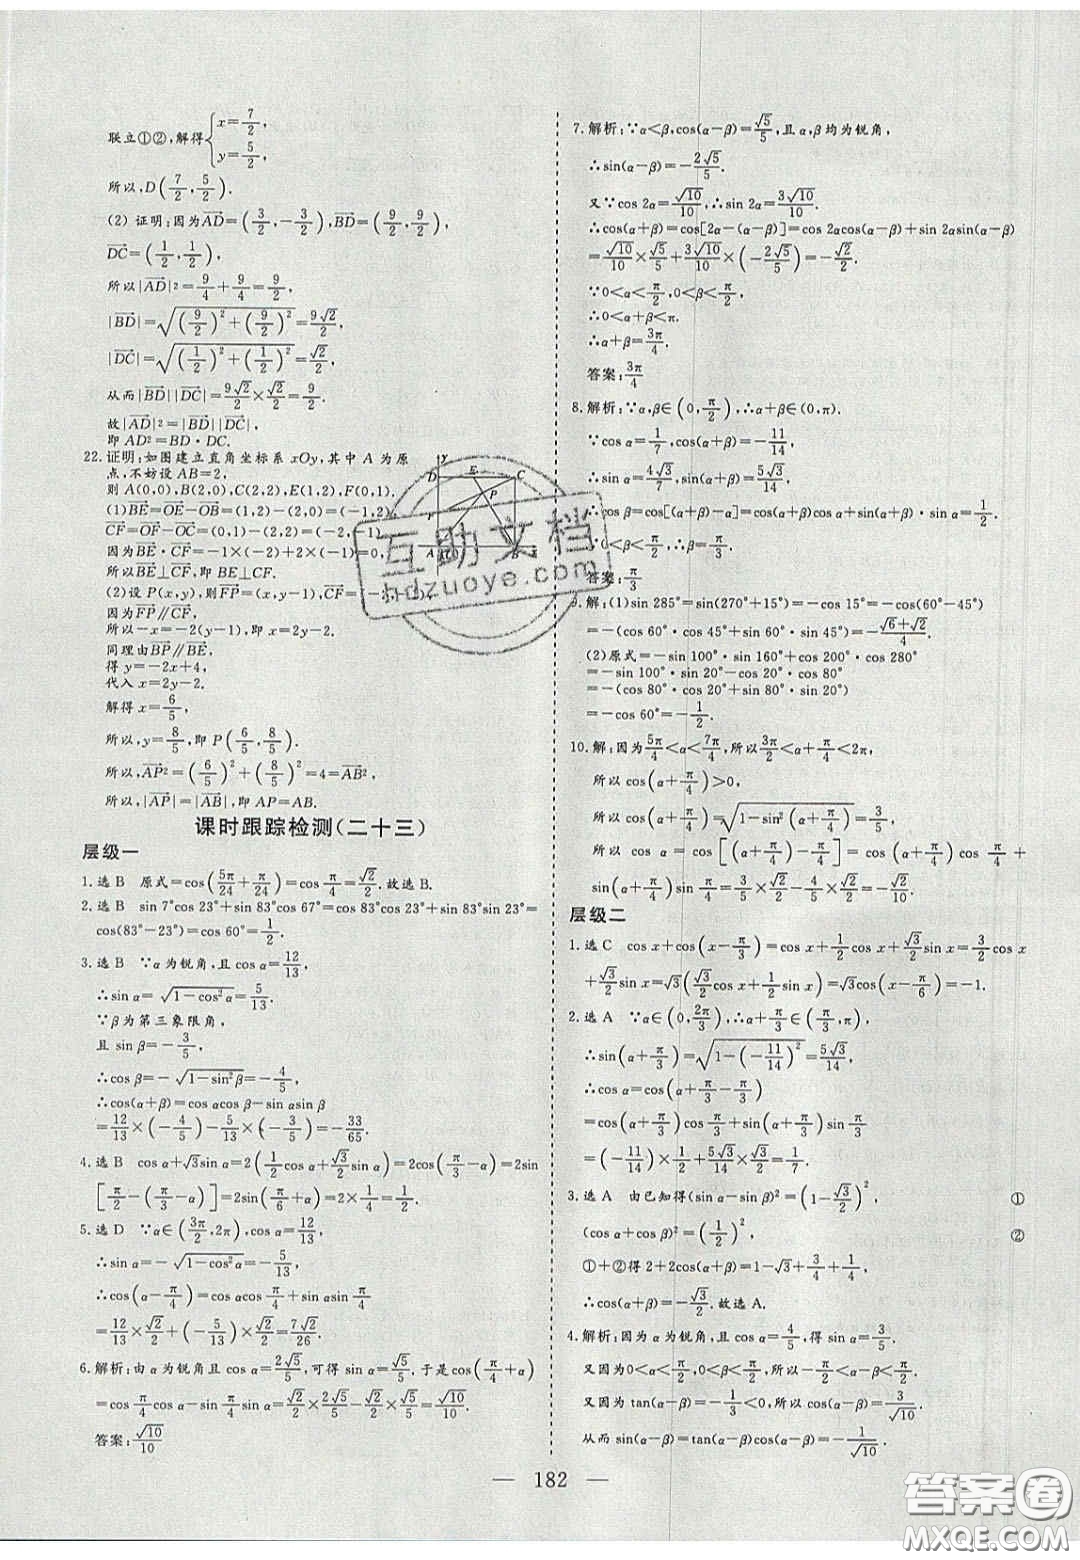 联立①②,解得{x=7/2, y=5/2,
所以,D(7/2,5/2).
(2) 证明:因为AD→=(3/2,-3/2),BD→=(9/2,9/2),
DC→=(1/2,1/2),
所以|AD→|²=9/4+9/4=9/2,
|BD→|=√((9/2)²+(9/2)²)=9√2/2,
|DC→|=√((1/2)²+(1/2)²)=√2/2,
从而|BD→||DC→|=9√2/2×√2/2=9/2.
故|AD→|²=|BD→||DC→|
即 AD²=BD·DC.
22.证明:如图建立直角坐标系 xOy,其中 A 为原
点,不妨设 AB=2,
则 A(0,0),B(2,0),C(2,2),E(1,2),F(0,1).
(1)BE→=OE→-OB→=(1,2)-(2,0)=(-1,2),
CF→=OF→-OC→=(0,1)-(2,2)=(-2,-1),
因为BE→·CF→=-1×(-2)+2×(-1)=0,
所以BE→⊥CF→,即 BE⊥CF.
(2)设 P(x,y),则FP→=(x,y-1),CF→=(-2,-1),
因为FP→∥CF→,
所以-x=-2(y-1),即 x=2y-2.
同理由BP→∥BE→,
得 y=-2x+4,
代入 x=2y-2.
解得 x=6/5,
所以,y=8/5,即 P(6/5,8/5).
所以,AP→²=(6/5)²+(8/5)²=4=AB→²,
所以,|AP→|=|AB→|,即 AP=AB.
课时跟踪检测(二十三)
层级一
1.选 B 原式=cos(5π/24+π/24)=cos π/4=√2/2.故选 B.
2.选 B sin 7°cos 23°+sin 83°cos 67°=cos 83°cos 23°+sin 83°sin 23°=
cos(83°-23°)=cos 60°=1/2.
3.选 B ∵α为锐角,且 cos α=12/13,
∴sin α=√(1-cos²α)=5/13.
∵β为第三象限角,
且 sin β=-3/5,
∴cos β=-√(1-sin²β)=-4/5,
∴cos(α+β)=cos αcos β-sin αsin β
=12/13×(-4/5)-5/13×(-3/5)=-33/65.
4.选 B cos α+√3sin α=2(1/2cos α+√3/2sin α)=2cos(π/3-α)=2sin
[π/2-(π/3-α)]=2sin(π/6+α)=2×1/4=1/2.
5.选 D ∵α∈(3π/2,2π),cos α=12/13,
∴sin α=-√(1-cos²α)=-5/13,
∴cos(α-π/4)=cos αcos π/4+sin αsin π/4
=12/13×√2/2+(-5/13)×√2/2=7√2/26.
6.解析:由α为锐角且 cos α=2√5/5,可得 sin α=√5/5.于是cos(π/4+α)
=cos π/4 cos α-sin π/4 sin α=√2/2×2√5/5-√2/2×√5/5=√10/10.
答案:√10/10
7.解析:∵α<β,cos(α-β)=√5/5,且 α,β均为锐角,
∴sin(α-β)=-2√5/5.
又∵cos 2α=√10/10,∴sin 2α=3√10/10.
∴cos(α+β)=cos[2α-(α-β)]=cos 2αcos(α-β)+sin 2αsin(α-β)
=√10/10×√5/5+3√10/10×(-2√5/5)=-√2/2.
∵0<α<π/2,0<β<π/2,
∴0<α+β<π.
∴α+β=3π/4.
答案:3π/4
8.解析:∵α,β∈(0,π/2),∴α+β∈(0,π).
∵cos α=1/7,cos(α+β)=-11/14,
∴sin α=4√3/7,sin(α+β)=5√3/14.
∴cos β=cos[(α+β)-α]=cos(α+β)cos α+sin(α+β)·sin α=1/2.
∵0<β<π/2,∴β=π/3.
答案:π/3
9.解:(1)sin 285°=sin(270°+15°)=-cos 15°=-cos(60°-45°)
=-(cos 60°·cos 45°+sin 60°·sin 45°)=-(√6+√2)/4.
(2)原式=-sin 100°·sin 160°+cos 200°·cos 280°
=-sin 100°·sin20°-cos 20°·cos 80°
=-(cos 80°·cos 20°+sin 80°·sin 20°)
=-cos 60°=-1/2.
10.解:因为5π/4<α<7π/4,所以3π/2<α+π/4<2π,
所以 cos(α+π/4)>0,
所以 cos(α+π/4)=√(1-sin²(α+π/4))=3/5,
所以 cos α=cos[(α+π/4)-π/4]=cos(α+π/4)cos π/4+
sin(α+π/4)sin π/4=3/5×√2/2-4/5×√2/2=-√2/10.
层级二
1.选 C cos x+cos(x-π/3)=cos x+1/2cos x+√3/2sin x=3/2cos x
+√3/2sin x=√3(√3/2cos x+1/2sin x)=√3cos(x-π/6)=-1.
2.选 A ∵α∈(0,2π/3),∴α+π/3∈(π/3,π),
∴sin(α+π/3)=√(1-(-11/14)²)=5√3/14,
∴cos α=cos(α+π/3-π/3)
=cos(α+π/3)cos π/3+sin(α+π/3)sin π/3
=(-11/14)×1/2+5√3/14×√3/2=1/7.
3.选 A 由已知得(sin α-sin β)²=(1-√3/2)², ①
(cos α+cos β)²=(1/2)², ②
①+②得 2+2cos(α+β)=1-√3+3/4+1/4,
∴cos(α+β)=-√3/2.故选 A.
4.解析:因为 α为锐角,且 cos α=4/5,得 sin α=3/5.
又因为0<α<π/2,0<β<π/2,所以-π/2<α-β<π/2.
又因为 tan(α-β)=-1/3<0,所以 cos(α-β)=3/√10.
从而 sin(α-β)=tan(α-β)cos(α-β)=-1/√10.
— 182 —
互助文档
hdzuoye.com
答案圈
MXQE.COM